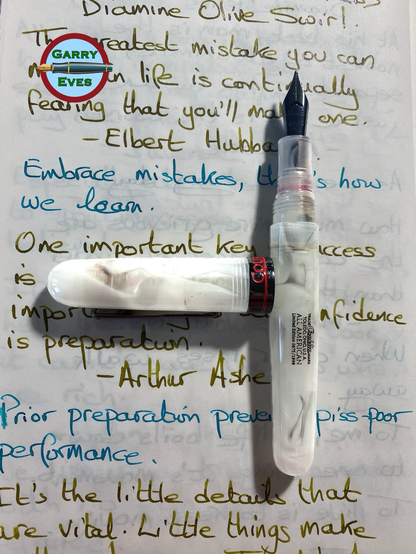 Diamine Olive Swirl.
GARRY
EYES
The greatest mistake you can
in life is continually
fearing that you'll one.
– Elbert
Embrace mistakes, how
we learn.
One important key success
is
important
is preparation.
– Arthur Ashe
Prior preparation piss-poor
performance.
It's the little details that
are vital. Little things make
ALL AMERICAN